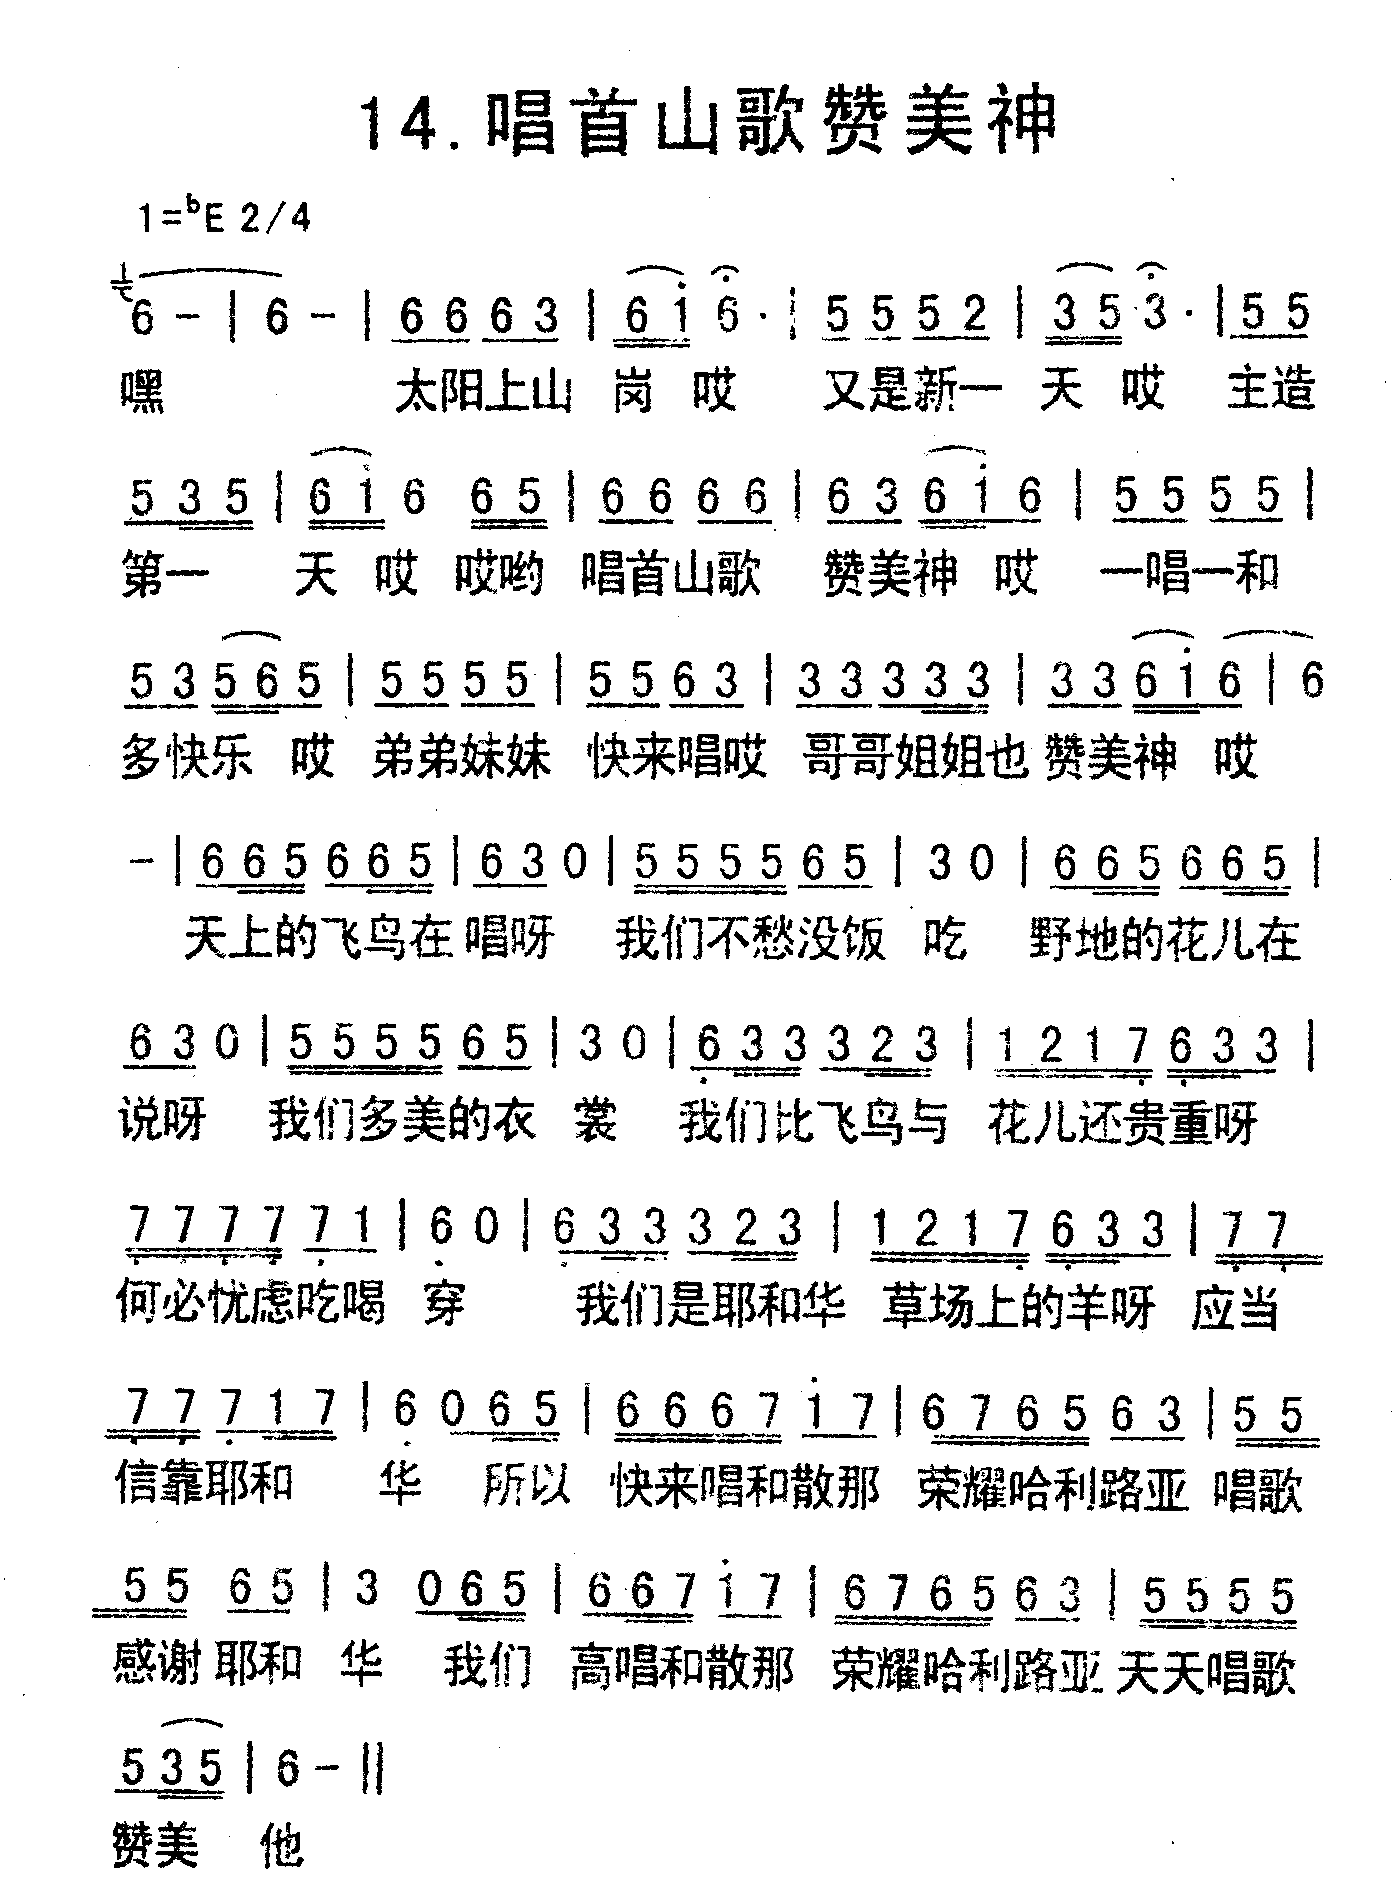 14.唱首山歌赞美神
1=♭E 2/4
6 - | 6 - | 6 6 6 3 | 6 i 6 · | 5 5 5 2 | 3 5 3 · | 5 5
嘿 太阳上山 岗 哎 又是新一 天 哎 主造
5 3 5 | 6 i 6 6 5 | 6 6 6 6 | 6 3 6 i 6 | 5 5 5 5 |
第一 天 哎 哎哟 唱首山歌 赞美神 哎 一唱一和
5 3 5 6 5 | 5 5 5 5 | 5 5 6 3 | 3 3 3 3 3 | 3 3 6 i 6 | 6
多快乐 哎 弟弟妹妹 快来唱哎 哥哥姐姐也 赞美神 哎
- | 6 6 5 6 6 5 | 6 3 0 | 5 5 5 5 6 5 | 3 0 | 6 6 5 6 6 5 |
天上的飞鸟在 唱呀 我们不愁没饭 吃 野地的花儿在
6 3 0 | 5 5 5 5 6 5 | 3 0 | 6 3 3 3 2 3 | 1 2 1 7 6 3 3 |
说呀 我们多美的衣 裳 我们比飞鸟与 花儿还贵重呀
7 7 7 7 7 1 | 6 0 | 6 3 3 3 2 3 | 1 2 1 7 6 3 3 | 7 7
何必忧虑吃喝 穿 我们是耶和华 草场上的羊呀 应当
7 7 7 1 7 | 6 0 6 5 | 6 6 6 7 i 7 | 6 7 6 5 6 3 | 5 5
信靠耶和 华 所以 快来唱和散那 荣耀哈利路亚 唱歌
5 5 6 5 | 3 0 6 5 | 6 6 7 i 7 | 6 7 6 5 6 3 | 5 5 5 5
感谢耶和 华 我们 高唱和散那 荣耀哈利路亚 天天唱歌
5 3 5 | 6 - ||
赞美 他